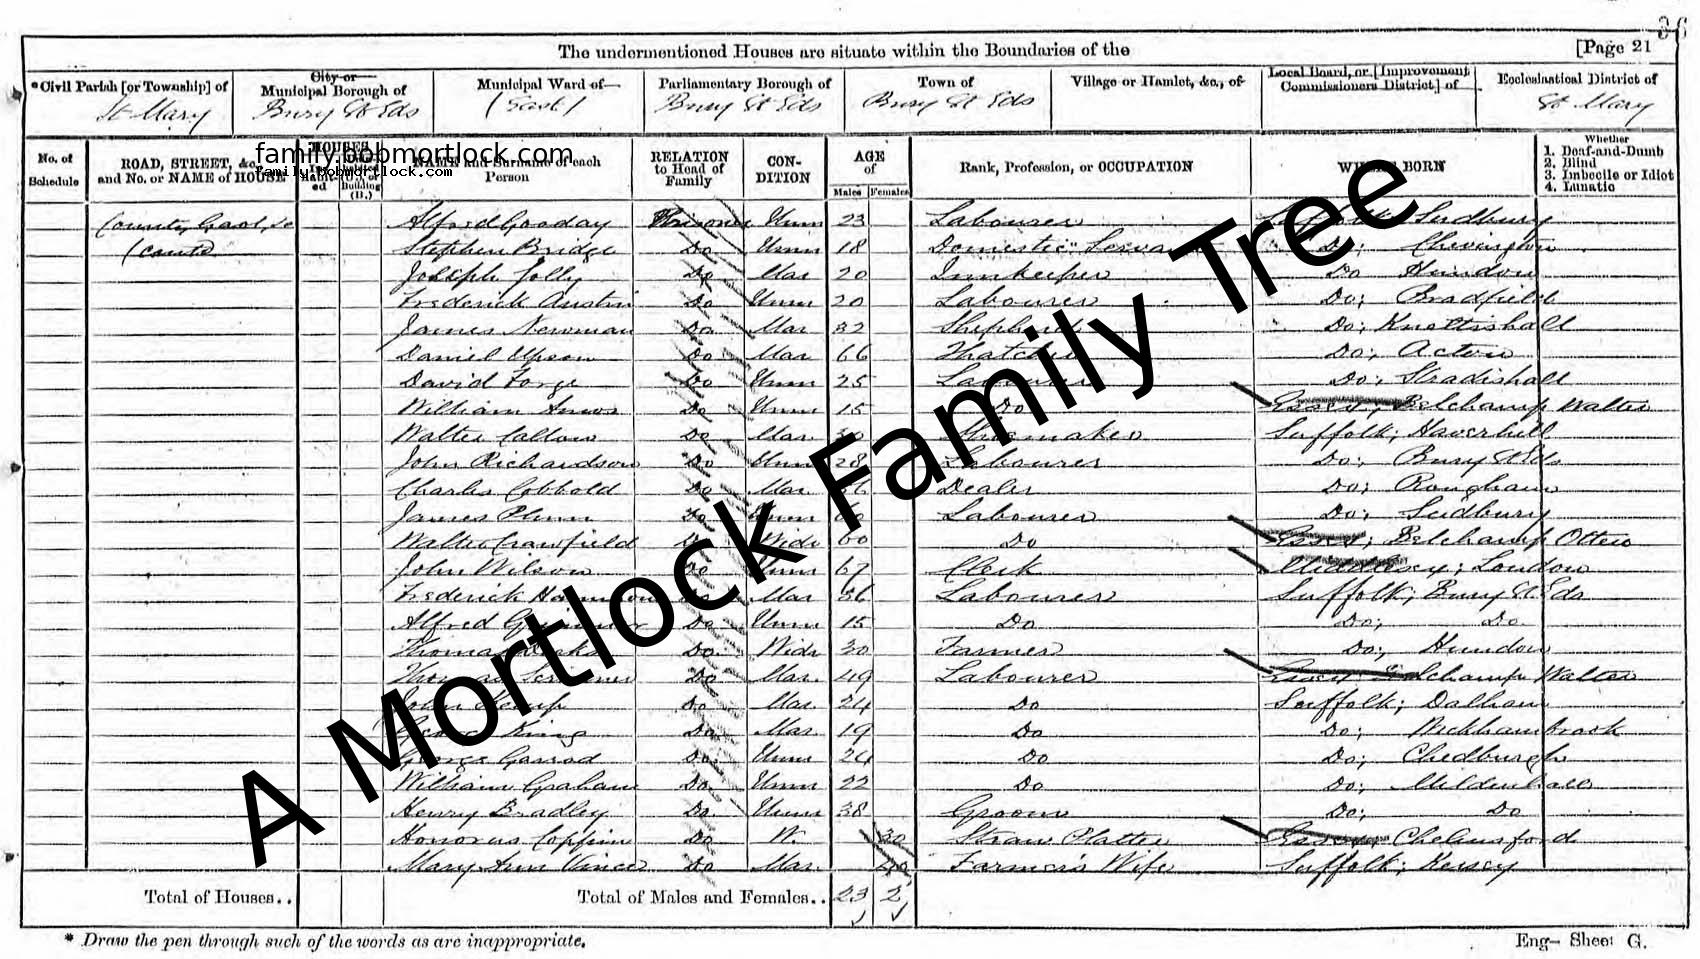 36
The undermentioned Houses are situate within the Boundaries of the [Page 21
*Civil Parish [or Township] of City or Municipal Borough of Municipal Ward of Parliamentary Borough of Town of Village or Hamlet, &c., of Local Board, or [Improvement Commissioners District] of Ecclesiastical District of
St Mary Bury St Eds (East) Bury St Eds Bury St Eds St Mary
family.bobmortlock.com
family.bobmortlock.com
No. of Schedule ROAD, STREET, &c., and No. or NAME of HOUSE HOUSES NAME and Surname of each Person RELATION to Head of Family CON-DITION AGE of Males Females Rank, Profession, or OCCUPATION WHERE BORN Whether 1. Deaf-and-Dumb 2. Blind 3. Imbecile or Idiot 4. Lunatic
County Gaol, Alfred Gooday Prisoner Unm 23 Labourer Suffolk; Sudbury
(contd Stephen Bridge Do Unm 18 Domestic Servant Do;
Joseph Jolly Do Mar 20 Innkeeper Do Hundon
Frederick Austin Do Unm 20 Labourer Do; Bradfield
James Newman Do Mar 32 Shepherd Do; Knettishall
Daniel Upson Do Mar 66 Thatcher Do; Acton
David Forge Do Unm 25 Labourer Do; Stradishall
William Amos Do Unm 15 Do Essex; Belchamp Walter
Walter Do Mar Shoemaker Suffolk; Haverhill
John Richardson Do Unm 28 Labourer Do; Bury St Eds
Charles Cobbold Do Mar Dealer Do; Rougham
James Plumb Do Unm Labourer Do; Sudbury
Walter Crawfield Do Widr 60 Do Essex; Belchamp Otten
John Wilson Do Unm 67 Clerk Middlesex; London
Frederick Do Mar 36 Labourer Suffolk; Bury St Eds
Alfred Do Unm 15 Do Do; Do
Thomas Do Widr 30 Farmer Do; Hundon
Thomas Do Mar 49 Labourer Essex Belchamp Walter
John Kemp Do Mar 24 Do Suffolk; Dalham
George King Do Mar 19 Do Do; Wickhambrook
George Garrod Do Unm 24 Do Do; Chedburgh
William Graham Do Unm 22 Do Do; Mildenhall
Henry Bradley Do Unm 38 Groom Do; Do
Honorus Coppin Do W. 30 Straw Platter Essex; Chelmsford
Mary Ann Vince Do Mar 40 Farmer's Wife Suffolk; Kersey
Total of Houses.. Total of Males and Females.. 23 2
* Draw the pen through such of the words as are inappropriate. Eng— Sheet G.
A Mortlock Family Tree